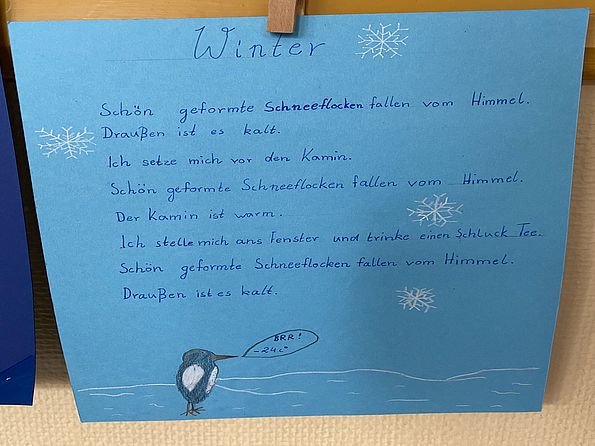 Winter
Schön geformte Schneeflocken fallen vom Himmel.
Draußen ist es kalt.
Ich setze mich vor den Kamin.
Schön geformte Schneeflocken fallen vom Himmel.
Der Kamin ist warm.
Ich stelle mich ans Fenster und trinke einen Schluck Tee.
Schön geformte Schneeflocken fallen vom Himmel.
Draußen ist es kalt.
BRR!
-24c°